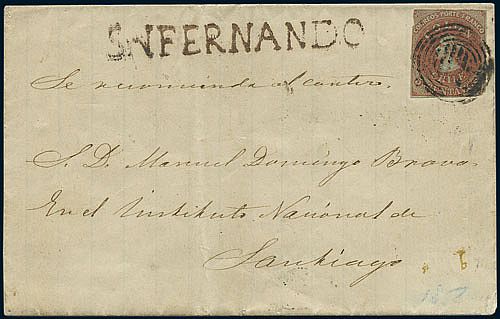 SNFERNANDO
CORREOS PORTE FRANCO
CHILE
CENTAVOS
Se recomienda al cartero.
S. D. Manuel Domingo Bravo
En el Instituto Nacional de
Santiago